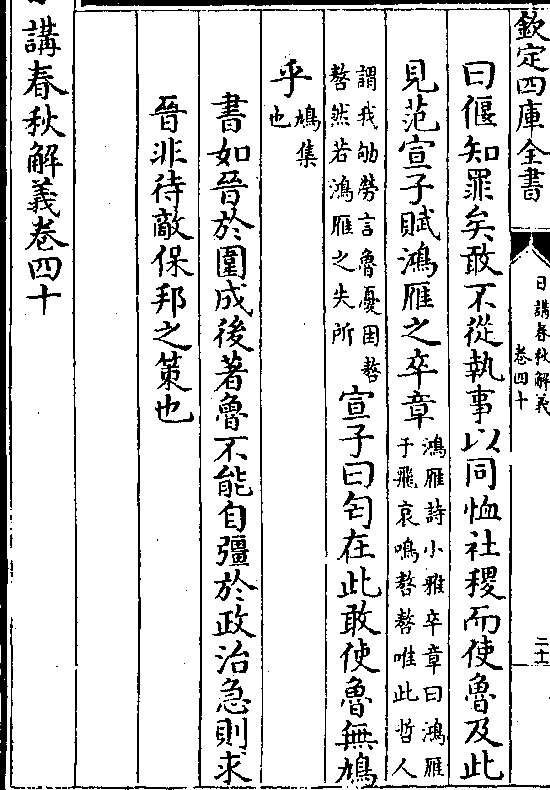 欽定四庫全書
日講春秋解義
卷四十
二十
曰偃知罪矣敢不從執事以同恤社稷而使魯及此
見范宣子賦鴻雁之卒章鴻雁詩小雅卒章曰鴻雁
于飛哀鳴嗸嗸唯此哲人
謂我劬勞言魯憂困嗸
嗸然若鴻雁之失所
宣子曰匄在此敢使魯無鳩
乎鳩集
也
書如晉於圍成後著魯不能自彊於政治急則求
晉非待敵保邦之策也
講春秋解義卷四十